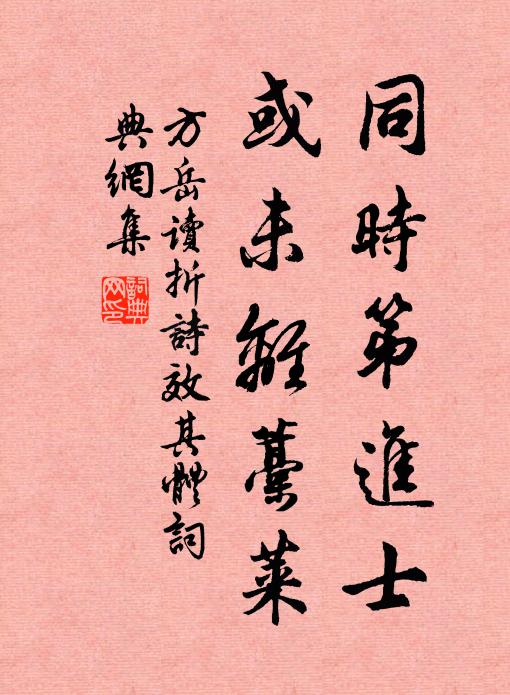 同時第進士
或未離藁萊
方岳讀折詩效其體詞
典網集
詞典網印